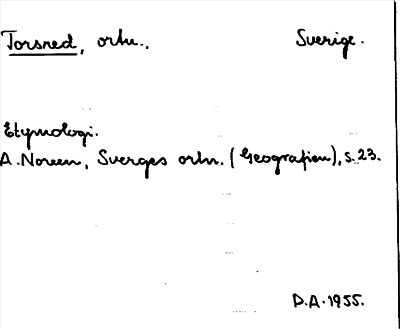 Torsred, ortn., Sverige.
Etymologi.
A. Noreen, Sverges ortn. (Geografien), s. 23.
D.A. 1955.